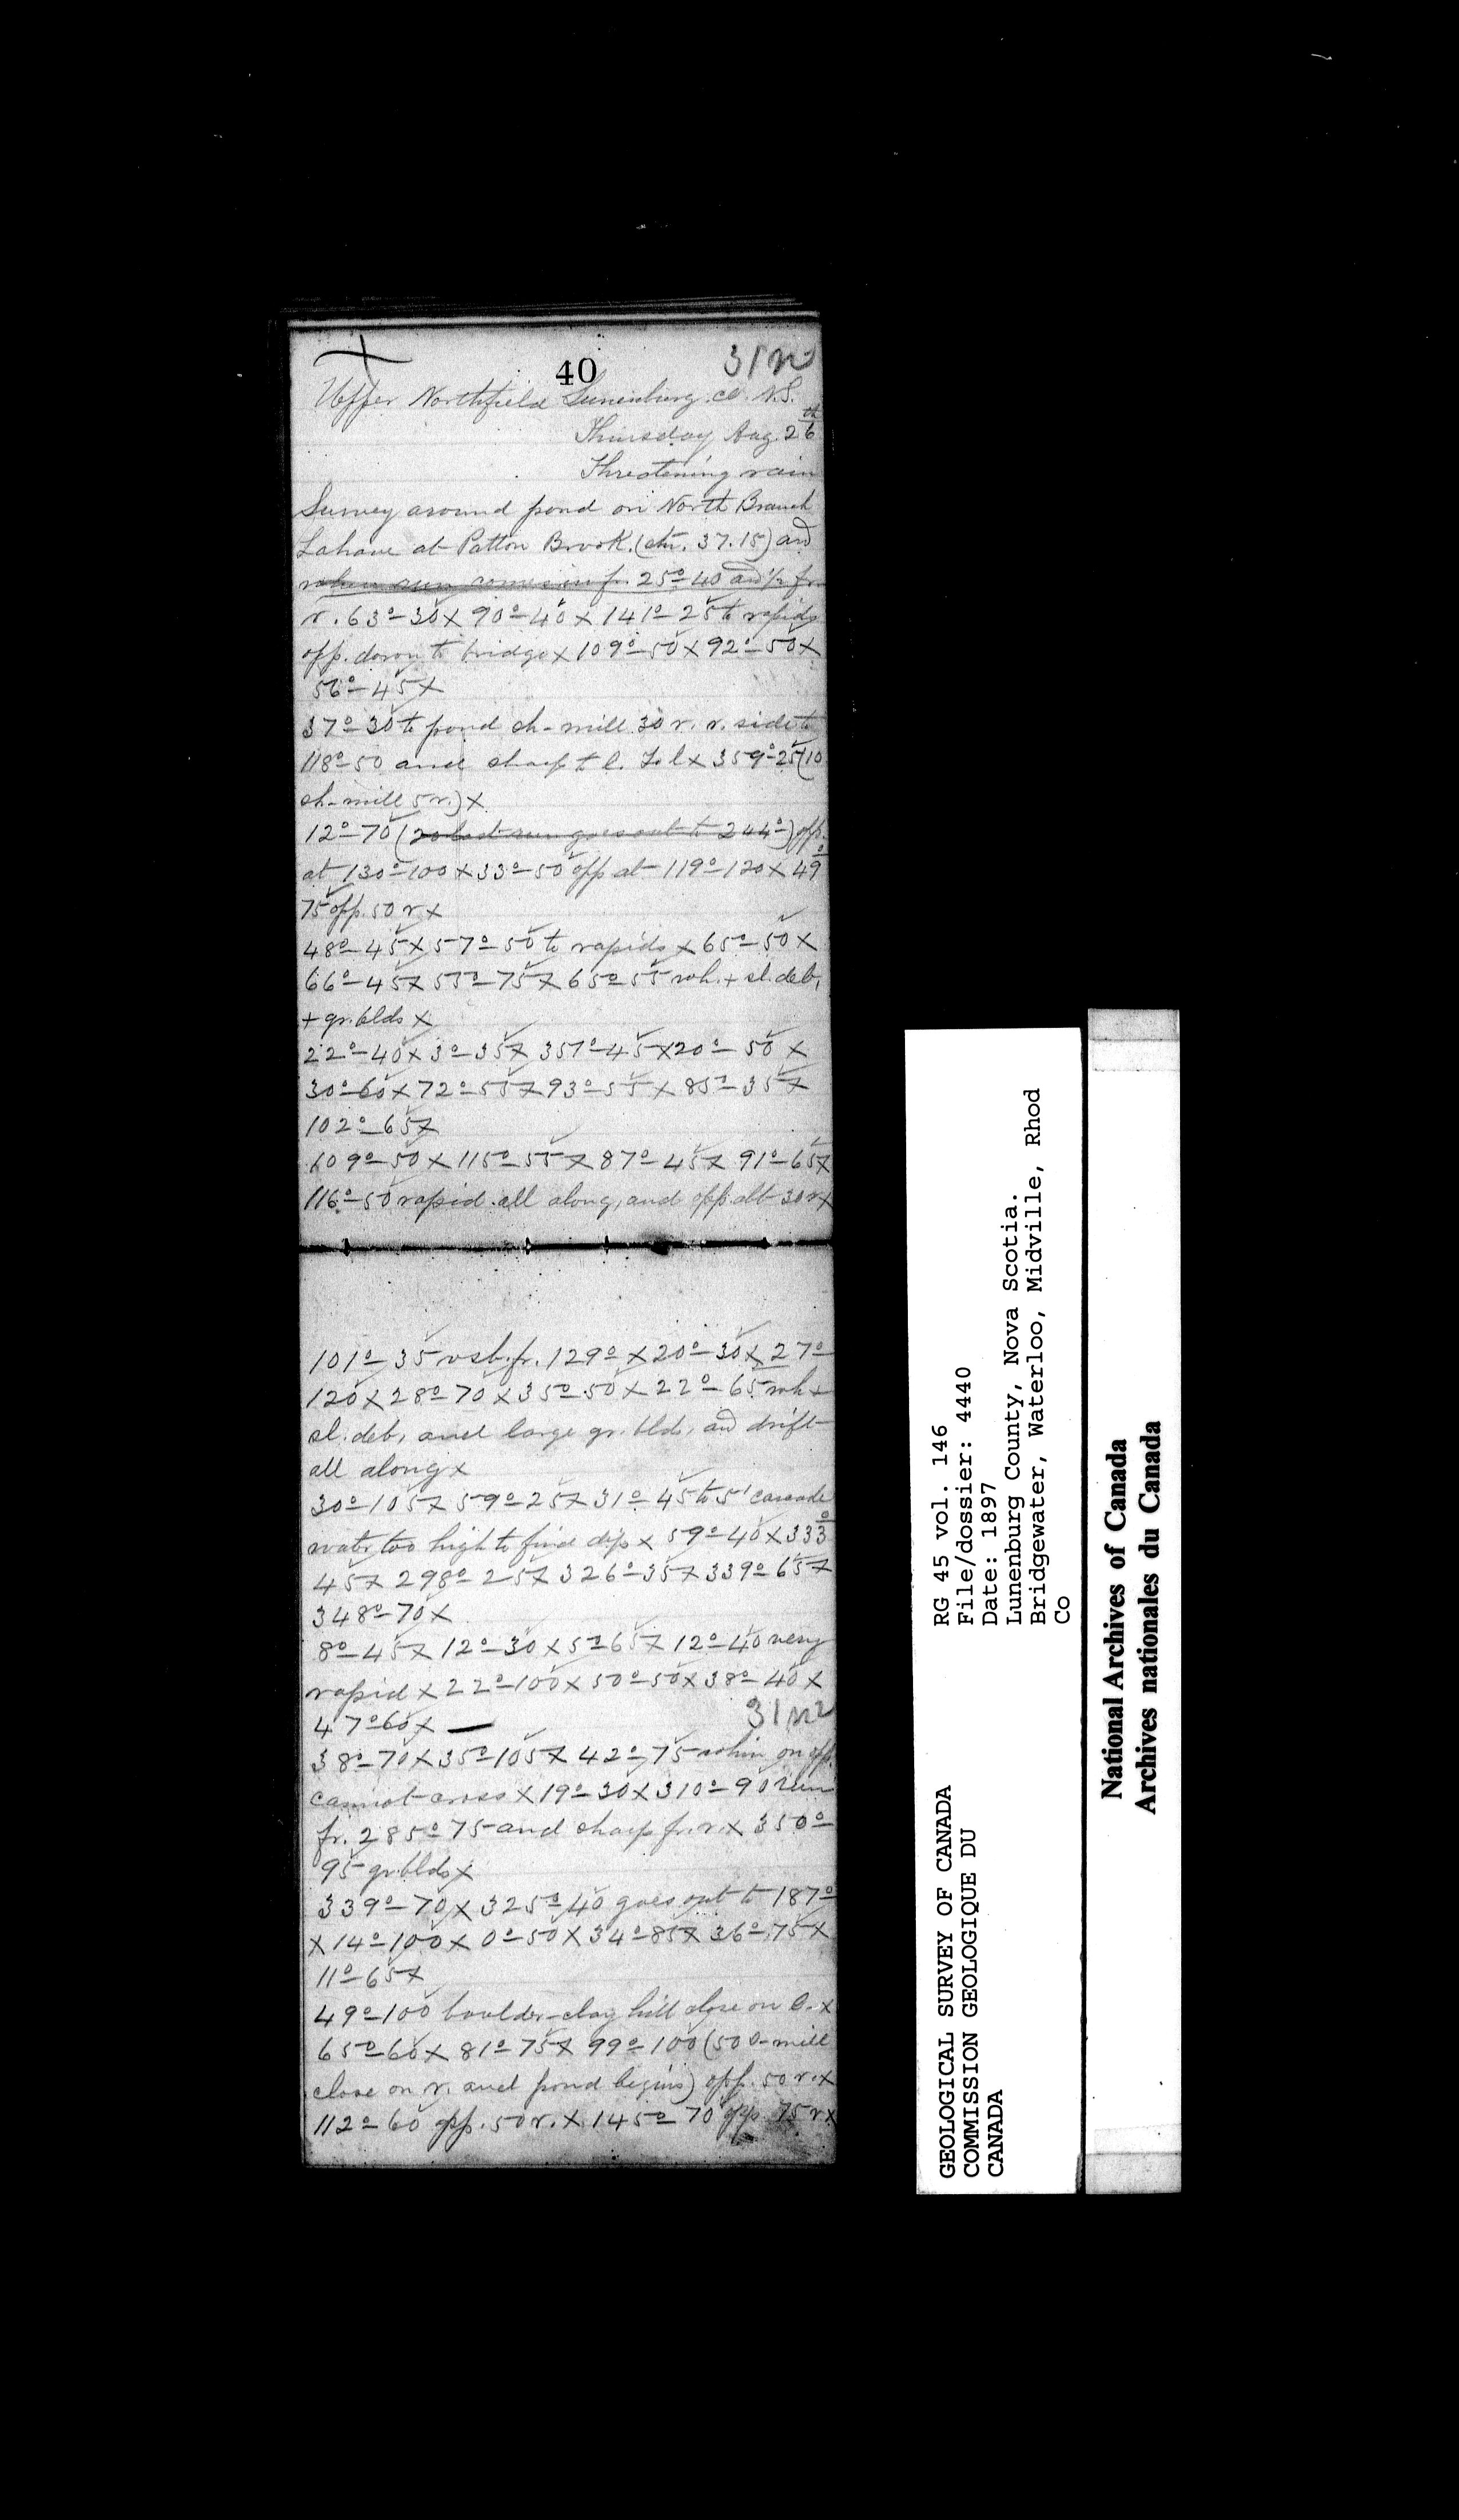 40
31n2
Upper Northfield Lunenburg. co. N.S.
Thursday Aug. 26th
Threatening rain
Survey around pond on North Branch
Lahave at Patton Brook. (chr. 37.15) and
when run comes in fr. 25°-40 and ½ fr
r. 63°-30 x 90°-40 x 141°-25 to rapids
opp. down to bridge x 109°-50 x 92°-50 x
56°-45 x
37°-30 to pond sh-mill 30 r. r. side to
118°-50 and sharp t l. To l x 359°-25 (10
sh-mill 5 r.) x
12°-70 (20 last run goes out to 244°) opp.
at 130°-100 x 33°-50 opp at 119°-120 x 49°
75 opp. 50 r x
48°-45 x 57°-50 to rapids x 65°-50 x
66°-45 x 55°-75 x 65°-55 wh. + sl. deb,
+ gr. blds x
22°-40 x 3°-35 x 357°-45 x 20°-50 x
30°-60 x 72°-55 x 93°-55 x 85°-35 x
102°-65 x
109°-50 x 115°-55 x 87°-45 x 91°-65 x
116°-50 rapid all along, and opp. abt 30 r x
101°-35 vsb. fr. 129° x 20°-30 x 27°
120 x 28°-70 x 35°-50 x 22°-65 wh +
sl. deb, and large gr. bld, and drift
all along x
30°-105 x 59°-25 x 31°-45 to 5' cascade
water too high to find dip x 59°-40 x 333°
45 x 298°-25 x 326°-35 x 339°-65 x
348°-70 x
8°-45 x 12°-30 x 5°-65 x 12°-40 very
rapid x 22°-100 x 50°-50 x 38°-40 x
47°-60 x —
31n2
38°-70 x 35°-105 x 42°-75 whin on opp.
cannot cross x 19°-30 x 310°-90 run
fr. 285°-75 and sharp fr. r. x 350°
95 gr. blds x
339°-70 x 325°-40 goes out to 187°
x 14°-100 x 0°-50 x 34°-85 x 36°-75 x
11°-65 x
49°-100 boulder-clay hill close on l. x
65°-60 x 81°-75 x 99°-100 (50 o-mill
close on r. and pond begins) opp. 50 r. x
112°-60 opp. 50 r. x 145°-70 opp. 75 r x
GEOLOGICAL SURVEY OF CANADA
COMMISSION GEOLOGIQUE DU
CANADA
RG 45 vol. 146
File/dossier: 4440
Date: 1897
Lunenburg County, Nova Scotia.
Bridgewater, Waterloo, Midville, Rhod
Co
National Archives of Canada
Archives nationales du Canada